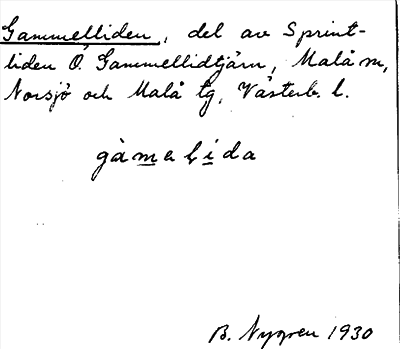 Gammelliden, del av Sprint-
liden Ö. Gammellidtjärn, Malå sn,
Norsjö och Malå tg, Västerb. l.
gàmelida
B. Nygren 1930